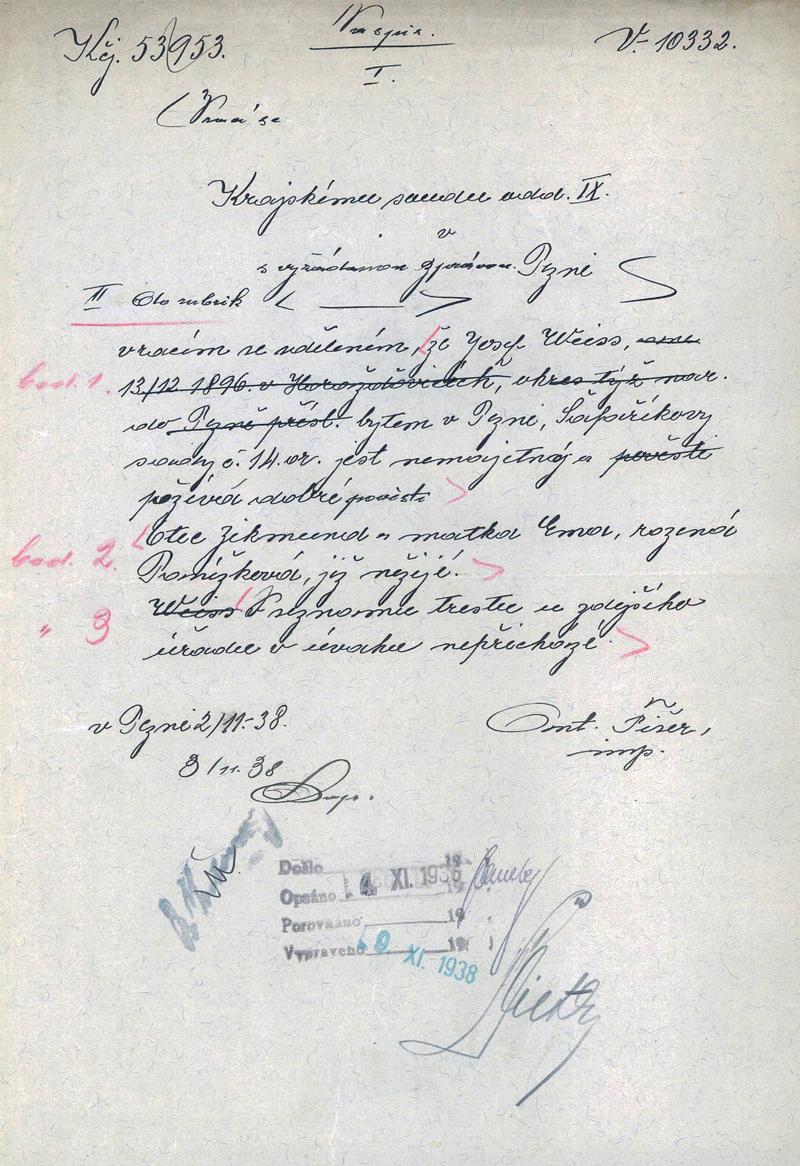 Kčj. 53953. Na spis. V- 10332.
I.
Vrací se
Krajskému soudu odd. IX.
v
s vyžádanou zprávou. Plzni
II Do rubrik
vracím se sdělením, že Josef Weiss,
bod. 1. 13/12 1896. v Horažďovicích, okres týž nar.
do Plzně přísl. bytem v Plzni, Šafaříkovy
sady č. 14. or. jest nemajetný a pověsti
požívá dobré pověsti
bod. 2. Otec Zikmund a matka Ema, rozená
Panížková, již nežijí.
" 3 Weiss V seznamu trestu u zdejšího
úřadu v úvahu nepřichází.
v Plzni 2/11.-38. Ant. Fišer,
insp.
3/11. 38
Došlo 19
Opsáno 4. XI. 1938 19
Porovnáno 19
Vypraveno 9 XI. 1938 19